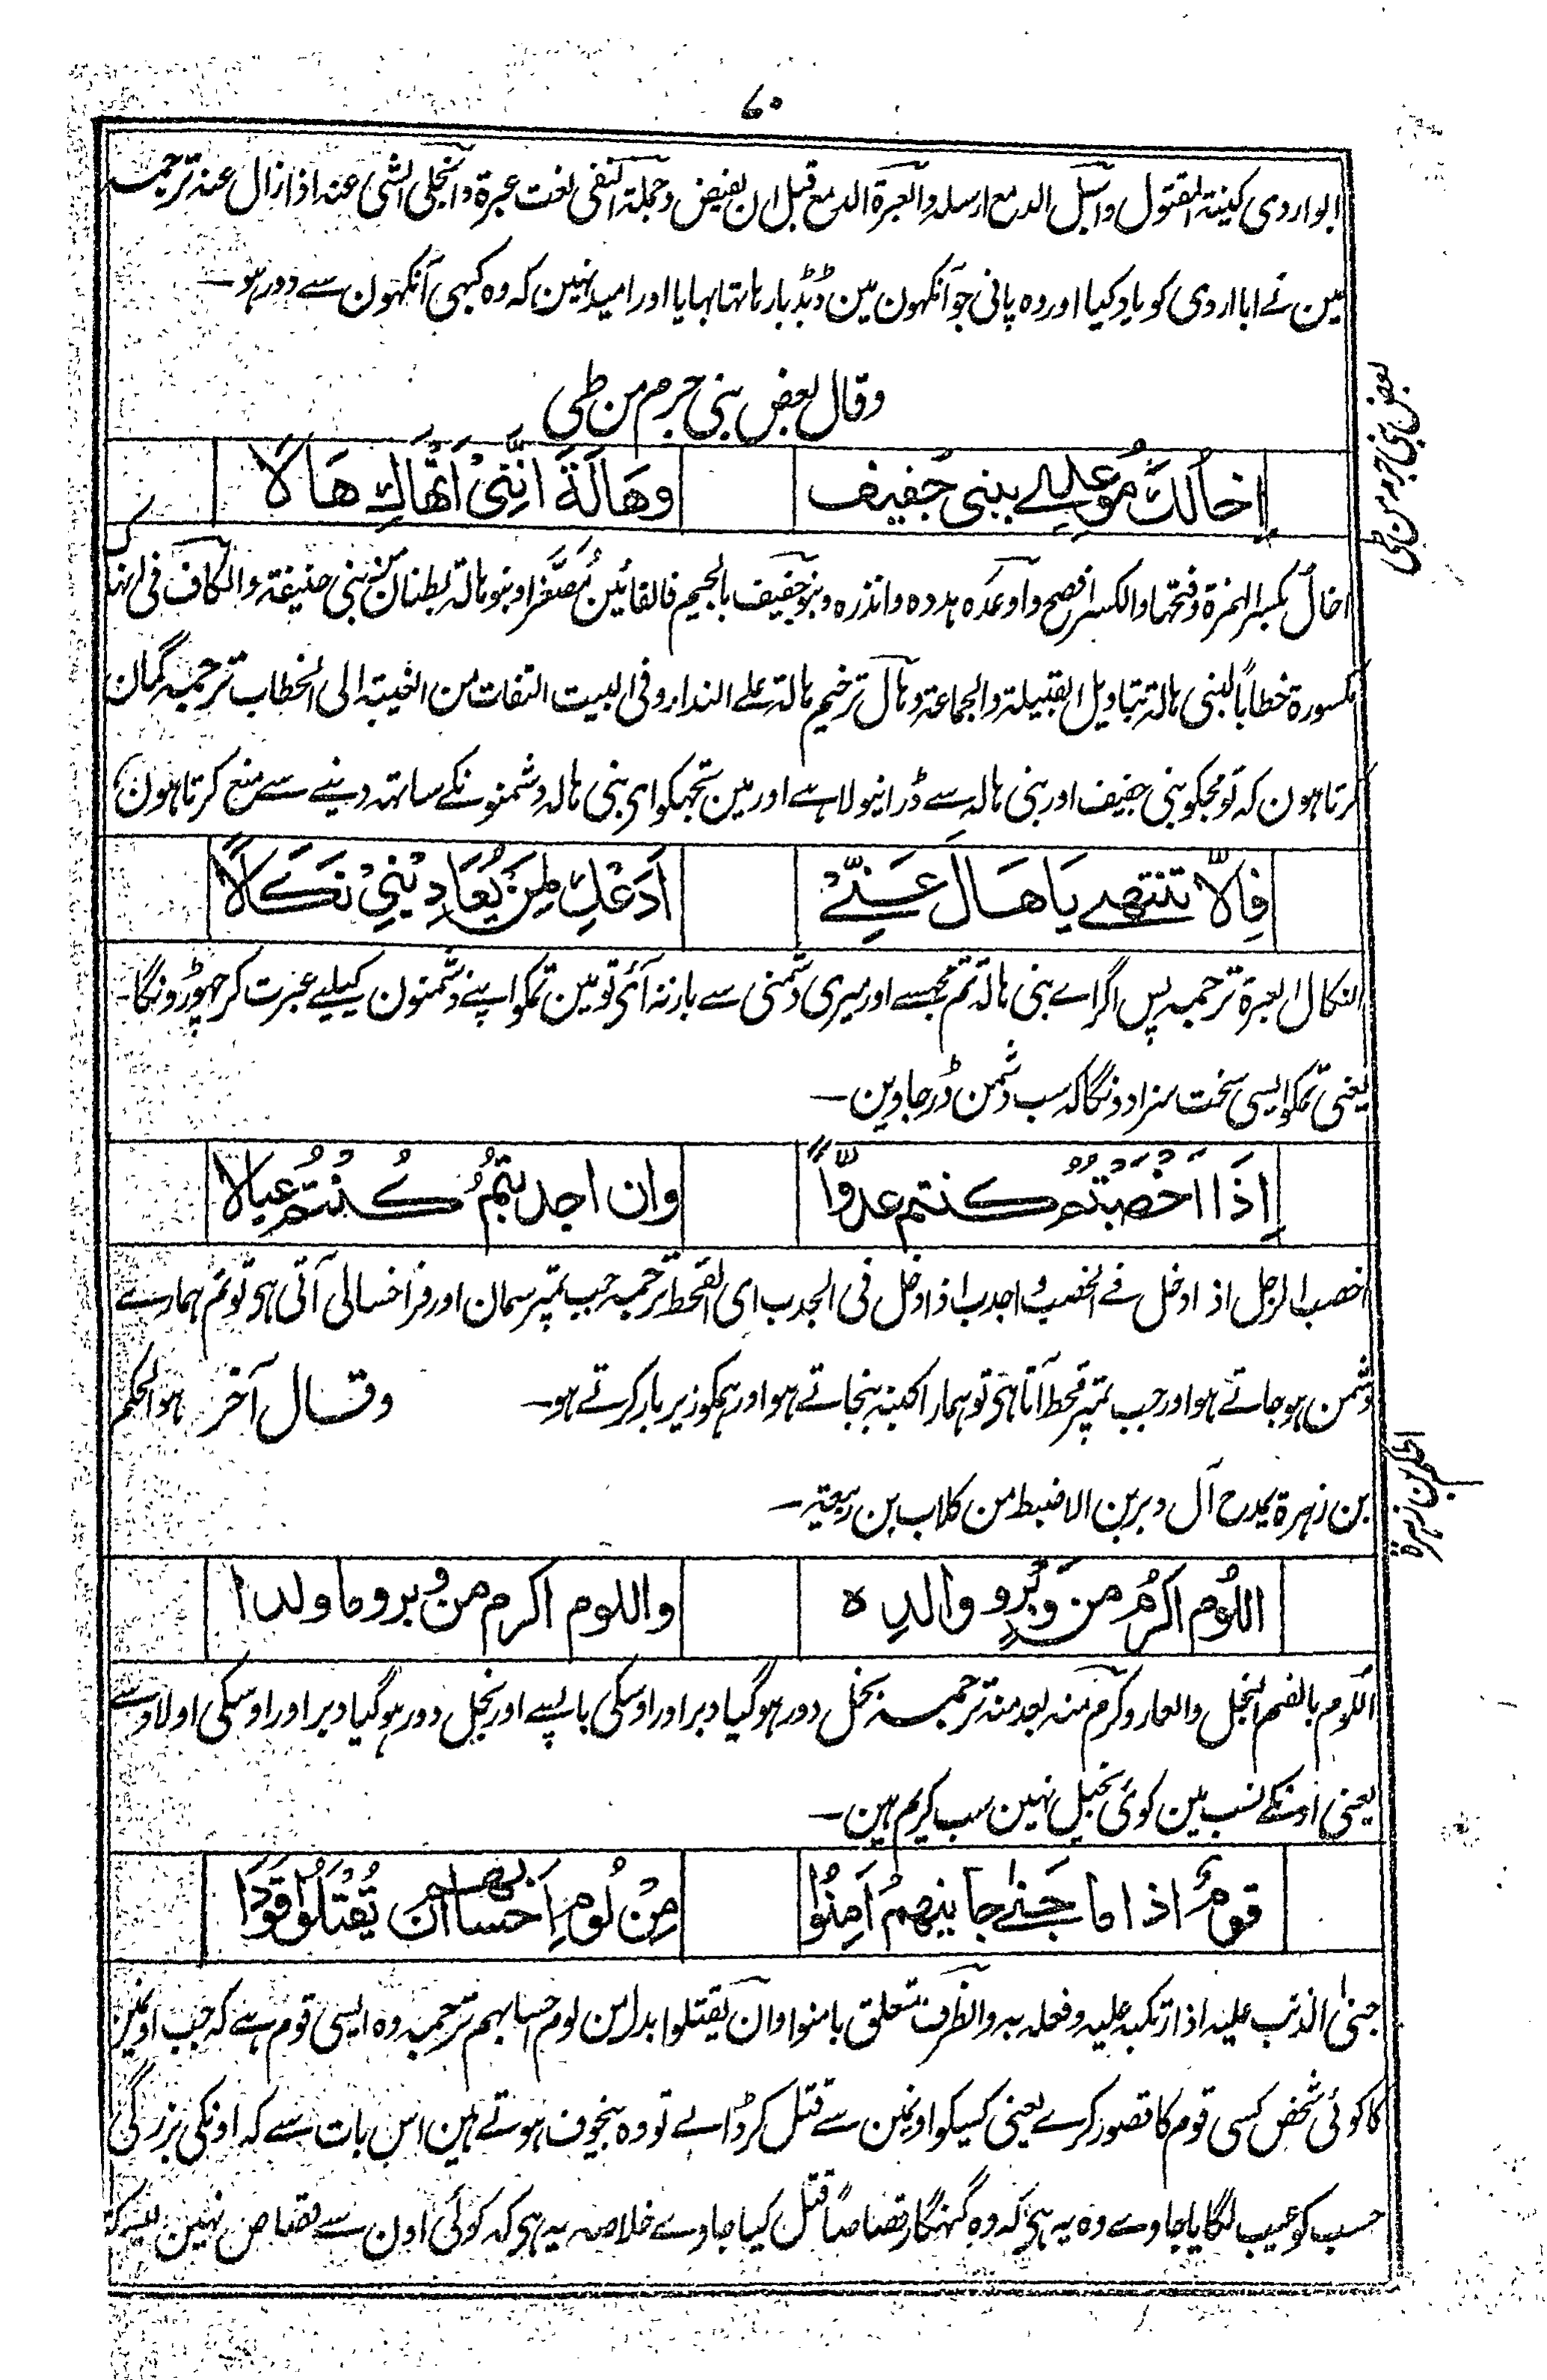 ۷۰
ابو اروی کنیتہ المقتول واسبل الدمع ارسلہ والعبرۃ الدمع قبل ان یفیض وجملۃ النفی نعت عبرۃ وانجلی الشی عنہ اذا زال عنہ ترجمہ
مین نے ابا اروی کو یاد کیا اور وہ پانی جو آنکہون مین ڈبڈبا رہا تہا بہایا اور امید نہین کہ وہ کبہی آنکہون سے دور ہو۔
وقال بعض بنی جرم من طی
بعض بنی جرم من طی
اِخَالُكَ مُوْعِدِے ببنی جُفَیف وَهَالَةَ اِنَّنِیْ اَنْهَاكِ هَالَا
اخال بکسر الہمزۃ وفتحہا والکسر افصح واوعدہ ہددہ وانذرہ وبنو جفیف بالجیم فالفائین مصغرا وبنو ہالۃ بطنان من بنی حنیفۃ والکاف فی انہاک
مکسورۃ خطاباً لبنی ہالۃ بتاویل القبیلۃ والجماعۃ وہال ترخیم ہالۃ علے الندا وفی البیت التفات من الغیبۃ الی الخطاب ترجمہ گمان
کرتا ہون کہ تو مجکو بنی جفیف اور بنی ہالہ سے ڈرانیولا ہے اور مین تجہکو ای بنی ہالہ دشمنونکے ساتہہ دینے سے منع کرتا ہون
فَاِلَّا تنتهے یَا هَالَ عَنِّے اَدَعْكِ لِمَنْ یُعَادِیْنِیْ نَكَالًا
النکال العبرۃ ترجمہ پس اگر اے بنی ہالہ تم مجسے اور میری دشمنی سے باز نہ آئی تو مین تمکو اپنے دشمنون کیلیے عبرت کر چہوڑونگا۔
یعنی تمکو ایسی سخت سزا دونگا کہ سب دشمن ڈر جاوین۔
اِذَا اَخْصَبْتُمُ كنتم عدوًّا وان اجدبتمُ كُنْتُمْ عِیالا
اخصب الرجل اذا دخل فے الخصب واجدب اذا دخل فی الجدب ای القحط ترجمہ جب تمپر سمان اور فراخسالی آتی ہی تو تم ہمارے
دشمن ہو جاتے ہو اور جب تمپر قحط آتا ہی تو ہمارا کنبہ بنجاتے ہو اور ہمکو زیر بار کرتے ہو۔ وقال آخر ہو الحکم
بن زہرۃ یمدح آل وبر بن الاضبط من کلاب بن ربیعۃ۔
الحکم بن زہرۃ
اللُّوم اكرمُ من وَبْرٍ و والدِہ واللوم اكرم من وبر وما ولدا
اللوم بالضم البخل والعار وکرم منہ بعد منہ ترجمہ بخل دور ہوگیا وبر اور اوسکی باپسے اور بخل دور ہوگیا وبر اور اوسکی اولاد سے
یعنی اونکے نسب مین کوئی بخیل نہین سب کریم ہین۔
قومٌ اذا ما جَنٰے جانیهمُ اَمِنُوا مِنْ لُومِ اَحسابهم ان یُقْتَلُوا قَوَدَا
جنی الذنب علیہ اذا ارتکبہ علیہ وفعلہ بہ والظرف متعلق بامنوا وان یقتلوا بدل من لوم احسابہم ترجمہ وہ ایسی قوم ہے کہ جب اونمین
کا کوئی شخص کسی قوم کا قصور کرے یعنی کسیکو اونمین سے قتل کر ڈالے تو وہ بیخوف ہوتے ہین اس بات سے کہ اونکی بزرگی
حسب کو عیب لگایا جاوے وہ یہ ہی کہ وہ گنہگار قصاصاً قتل کیا جاوے خلاصہ یہ ہی کہ کوئی اون سے قصاص نہین